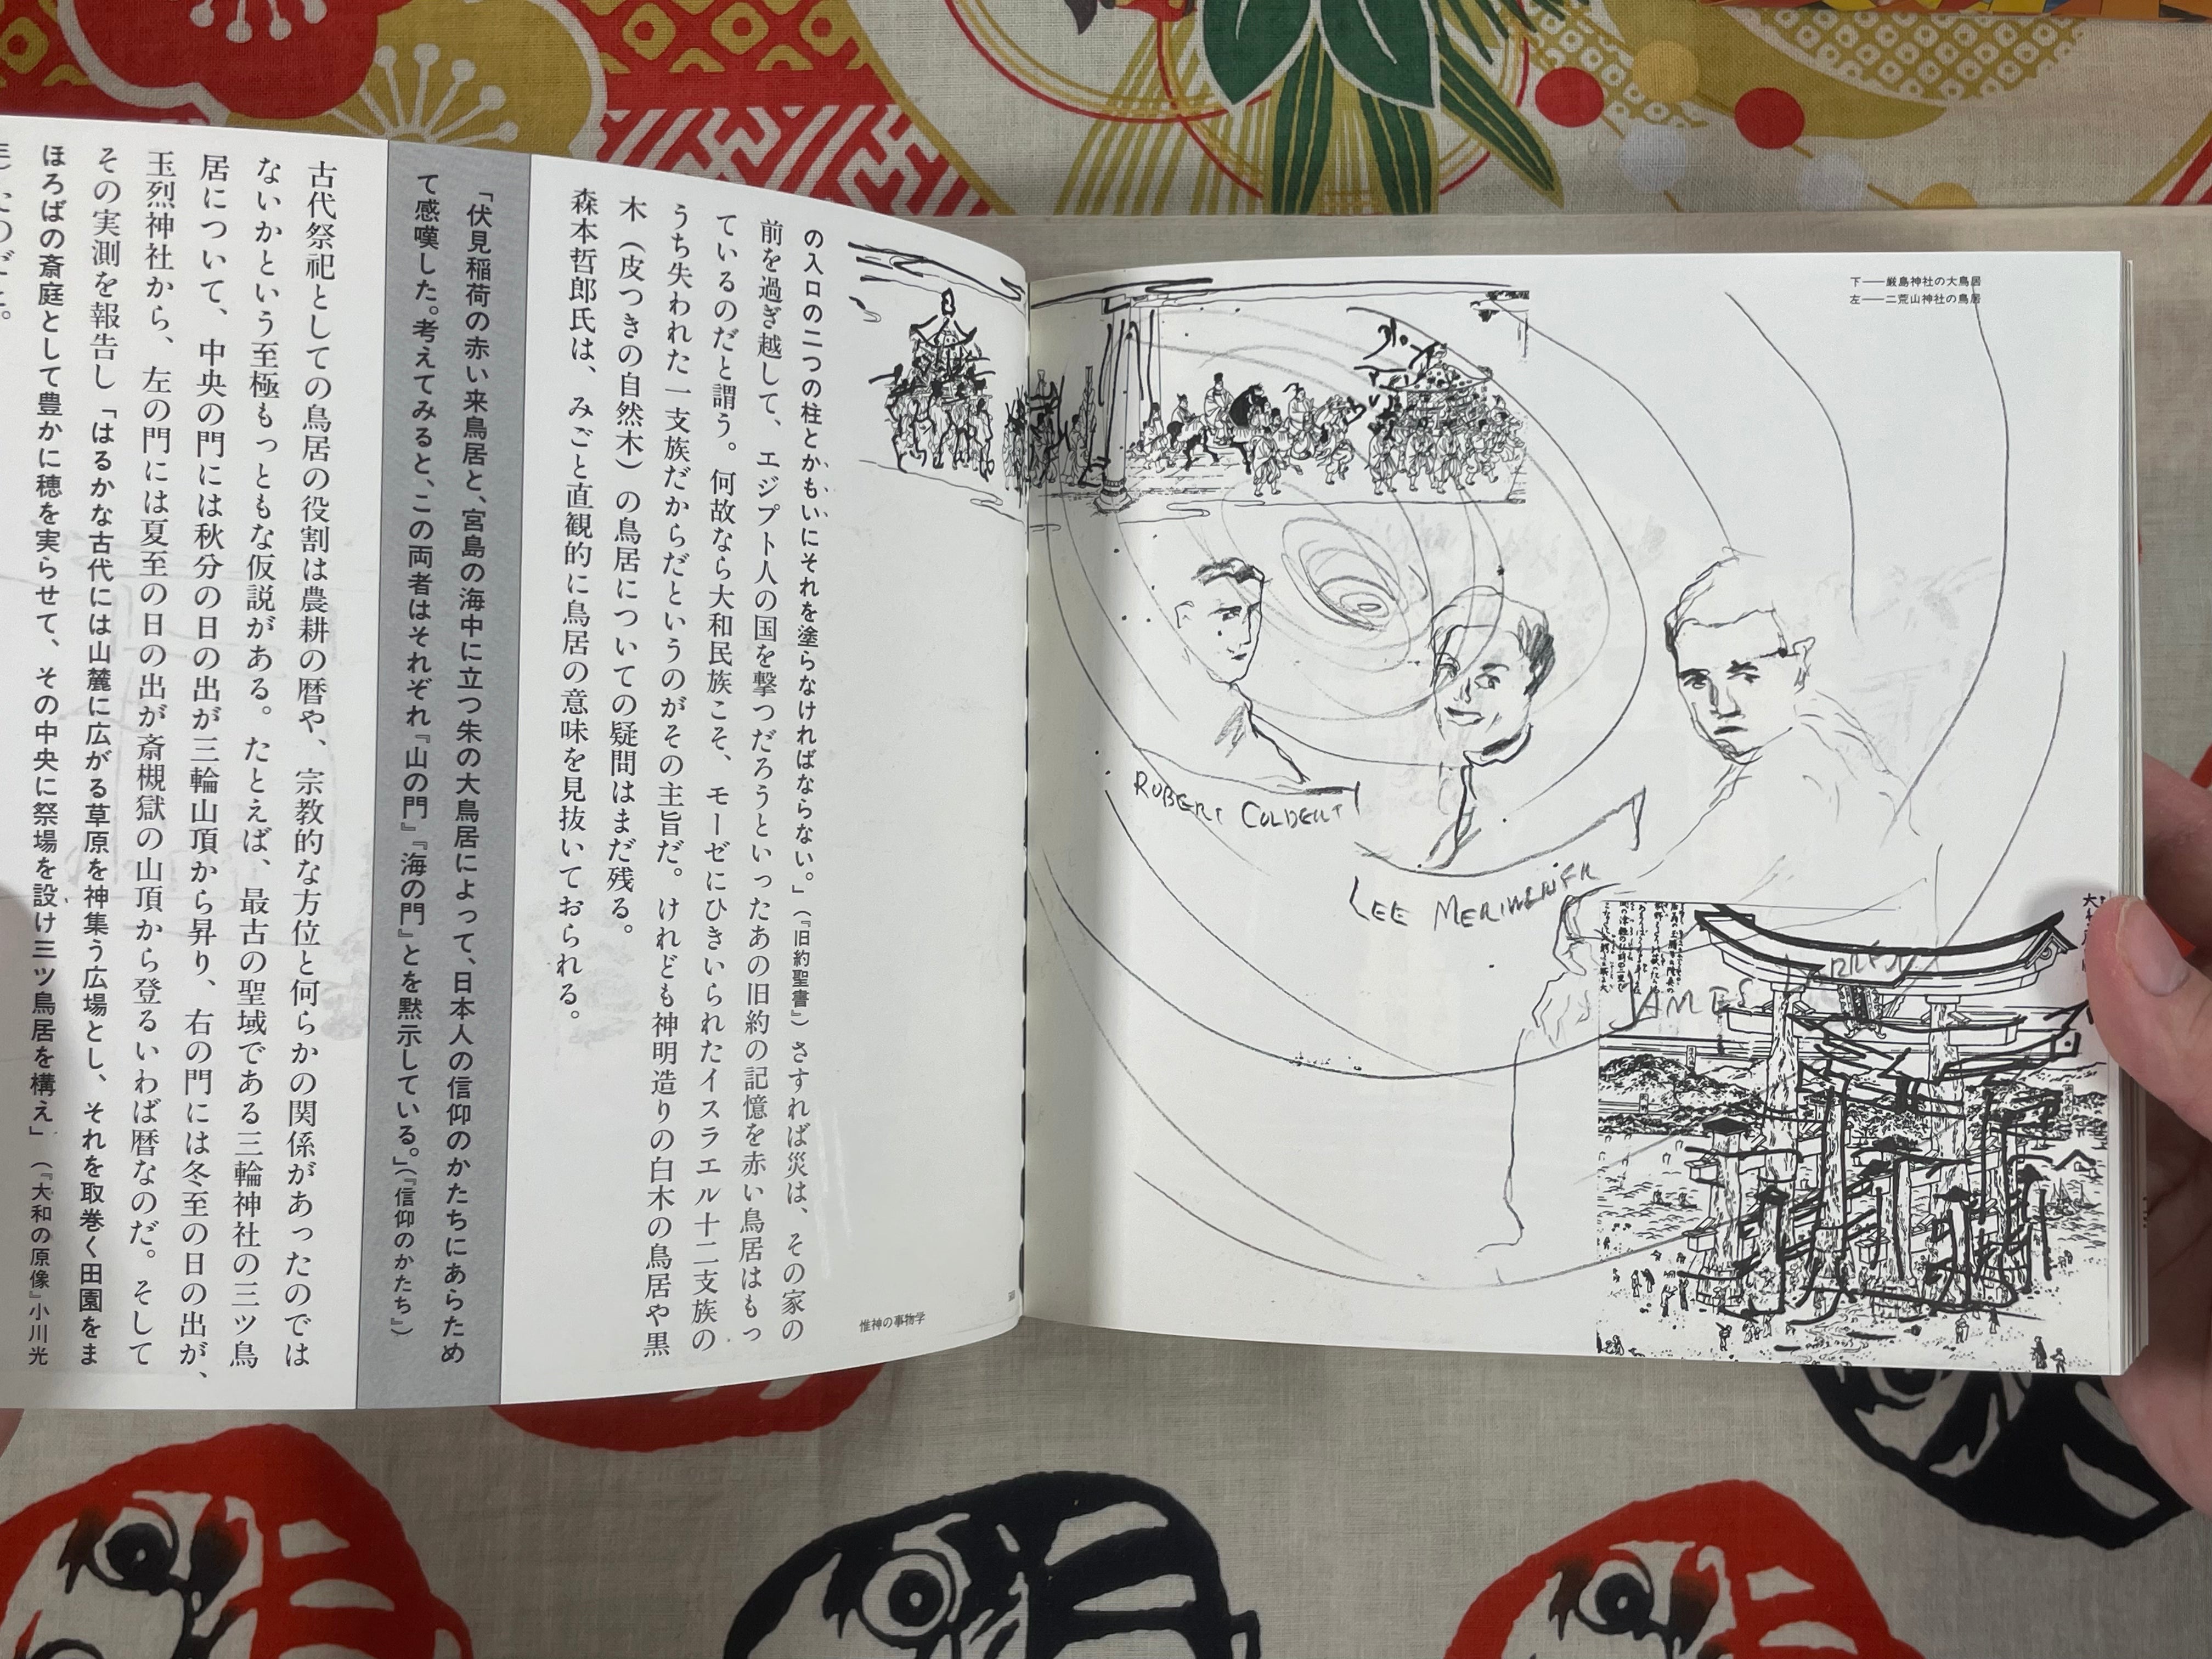 下――厳島神社の大鳥居
左――二荒山神社の鳥居
ROBERT COLBERT
LEE MERIWEHER
JAMES DARREN
の入口の二つの柱とかもいにそれを塗らなければならない。」（『旧約聖書』）さすれば災は、その家の
前を過ぎ越して、エジプト人の国を撃つだろうといったあの旧約の記憶を赤い鳥居はもっ
ているのだと謂う。何故なら大和民族こそ、モーゼにひきいられたイスラエル十二支族の
うち失われた一支族だからだというのがその主旨だ。けれども神明造りの白木の鳥居や黒
木（皮つきの自然木）の鳥居についての疑問はまだ残る。
森本哲郎氏は、みごと直観的に鳥居の意味を見抜いておられる。
「伏見稲荷の赤い来鳥居と、宮島の海中に立つ朱の大鳥居によって、日本人の信仰のかたちにあらため
て感嘆した。考えてみると、この両者はそれぞれ『山の門』『海の門』とを黙示している。」（『信仰のかたち』）
古代祭祀としての鳥居の役割は農耕の暦や、宗教的な方位と何らかの関係があったのでは
ないかという至極もっともな仮説がある。たとえば、最古の聖域である三輪神社の三ツ鳥
居について、中央の門には秋分の日の日の出が三輪山頂から昇り、右の門には冬至の日の出が、
玉烈神社から、左の門には夏至の日の出が斎槻獄の山頂から登るいわば暦なのだ。そして
その実測を報告し「はるかな古代には山麓に広がる草原を神集う広場とし、それを取巻く田園をま
ほろばの斎庭として豊かに穂を実らせて、その中央に祭場を設け三ツ鳥居を構え」（『大和の原像』小川光
惟神の事物学